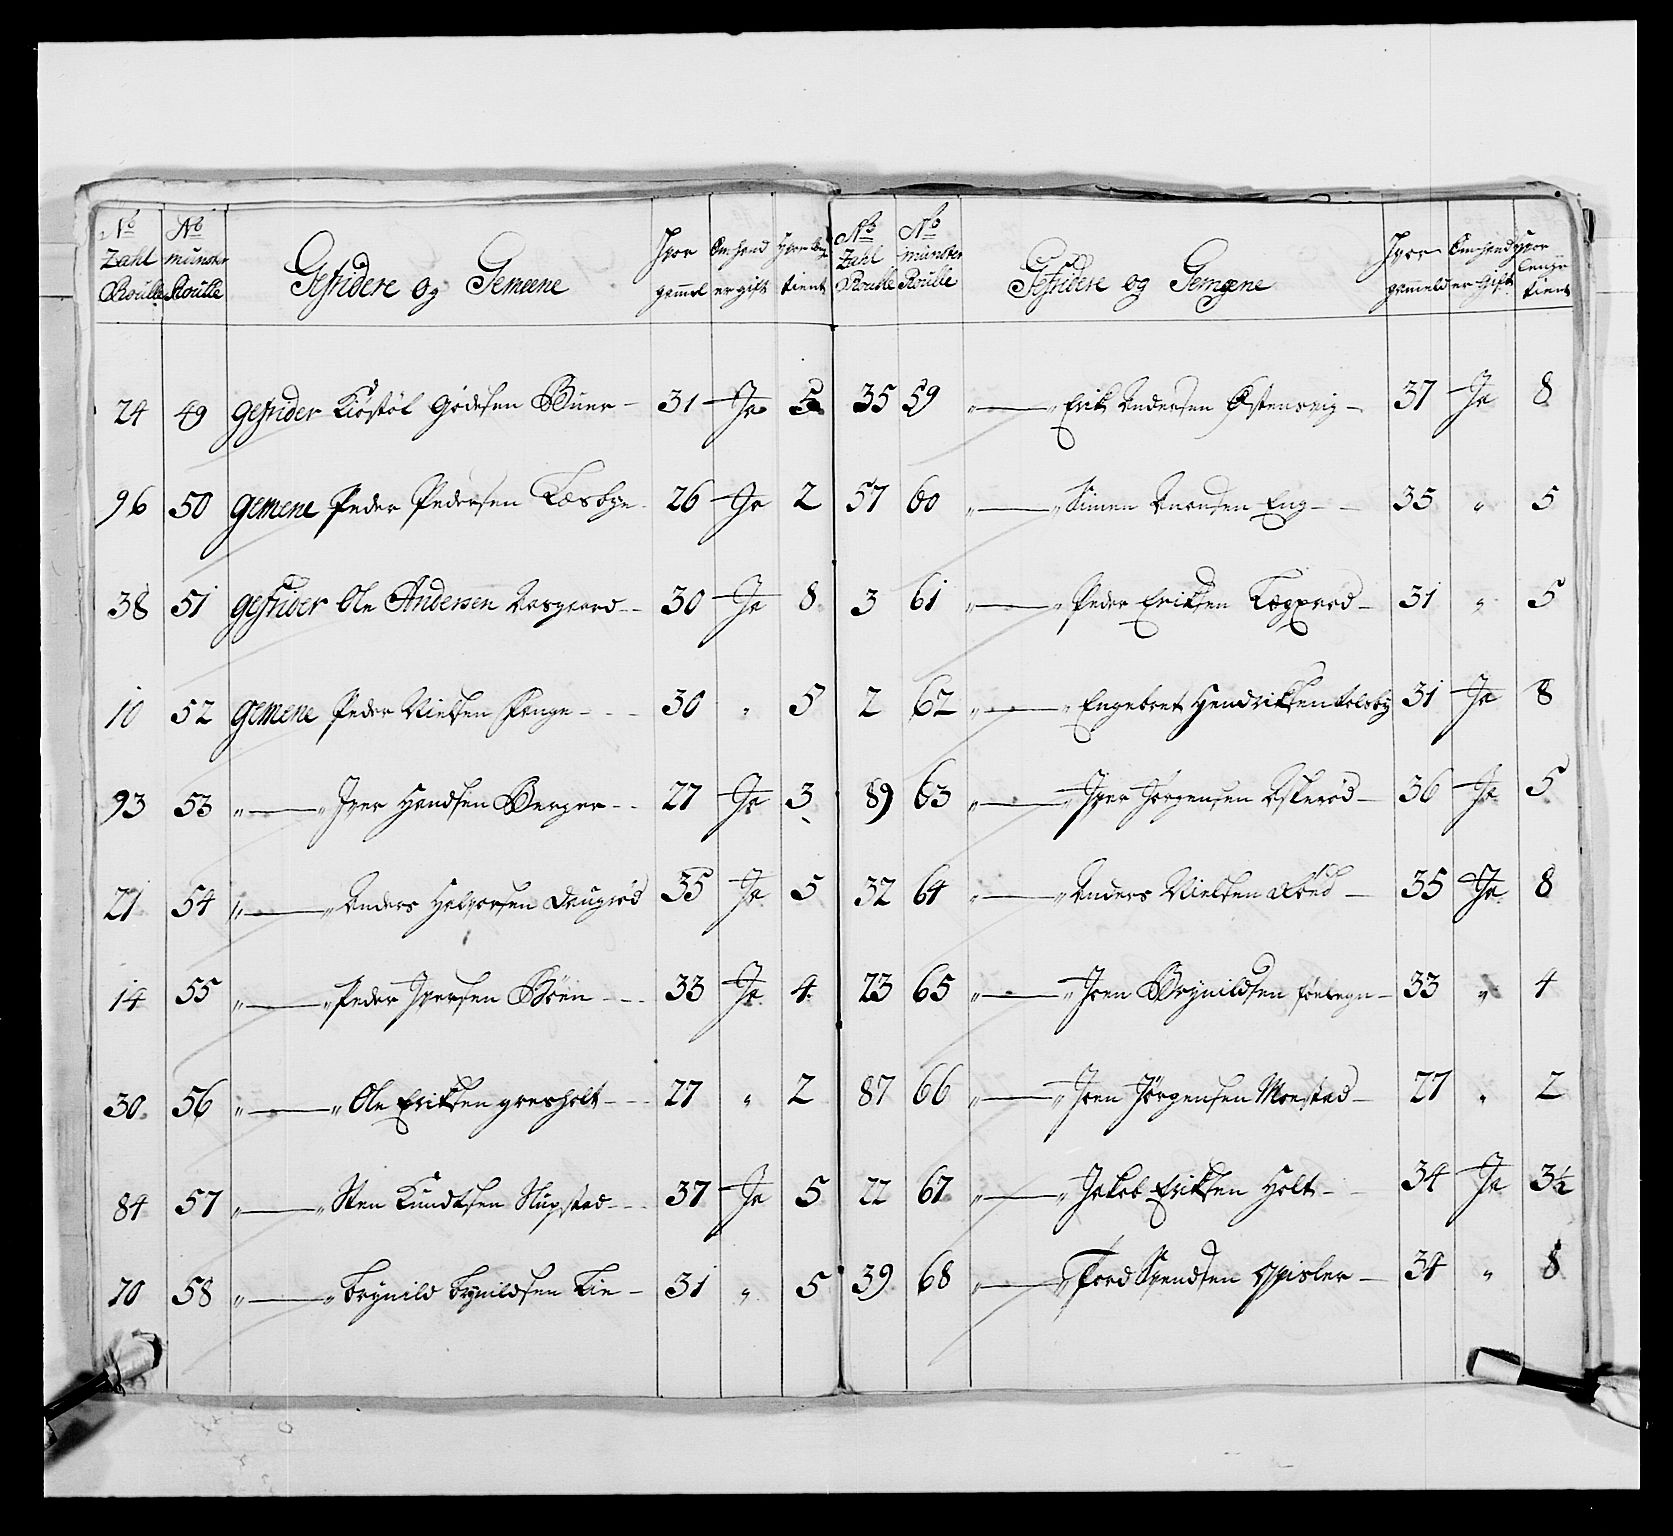 No Zahl Roulle | No münster Roulle | Gefridere og Gemeene | Hvor gammel | Om hand er gift | Hvor længe tient
24 | 49 | Gefrider Kiöstöl Buer - | 31 | Ja | 5
96 | 50 | Gemene Peder Pedersen | 26 | Ja | 2
38 | 51 | Gefrider Ole Andersen Aasgaard - - | 30 | Ja | 8
10 | 52 | Gemene Peder Nielsen - - - | 30 | " | 5
93 | 53 | " — " Iver Handsen Berger - - | 27 | Ja | 3
21 | 54 | " — " Anders Halvorsen | 35 | Ja | 5
14 | 55 | " — " Peder Iversen Böen - - - | 33 | Ja | 4
30 | 56 | " — " Ole Eriksen gresholt - - - | 27 | " | 2
84 | 57 | " — " Sten Knudtsen - - - | 37 | Ja | 5
70 | 58 | " — " Brÿnild Brÿnildsen Lie - | 31 | " | 5
No Zahl Roulle | No münster Roulle | Gefridere og Gemene | Hvor gameld | Om hand er Gift | hvor lenge tient
35 | 59 | " — " Erik Andersen Östensvig - | 37 | Ja | 8
57 | 60 | " — " Simen Knudsen Eng - - | 35 | " | 5
3 | 61 | " — " Peder Eriksen - | 31 | " | 5
2 | 62 | " — " Engebret Hendriksen Folsby | 31 | Ja | 8
89 | 63 | " — " Iver Jörgensen Askeröd - | 36 | Ja | 5
32 | 64 | " — " Anders Nielsen - | 35 | Ja | 8
23 | 65 | " — " Joen Brÿnildsen - | 33 | " | 4
87 | 66 | " — " Joen Jörgensen Moestad - | 27 | " | 2
22 | 67 | " — " Jakob Eriksen Holt - - | 34 | Ja | 3½
39 | 68 | " — " Tord Svendsen - | 34 | " | 8